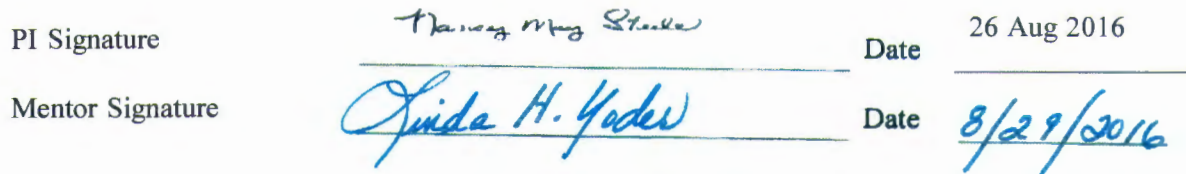 PI Signature Nancy May Steele Date 26 Aug 2016
Mentor Signature Linda H. Yoder Date 8/29/2016